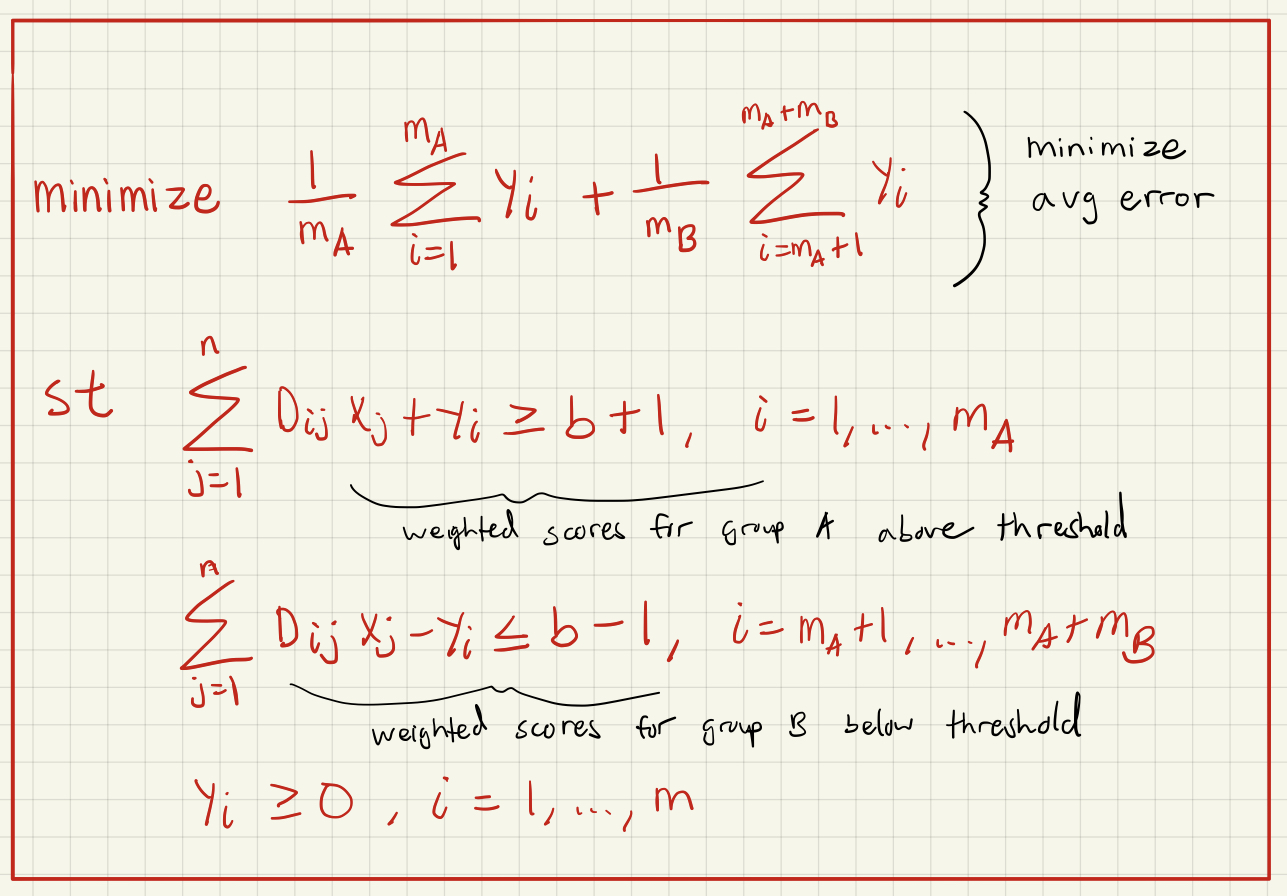 minimize 1/m_A ∑_{i=1}^{m_A} y_i + 1/m_B ∑_{i=m_A+1}^{m_A+m_B} y_i } minimize
avg error
st ∑_{j=1}^{n} D_{ij} x_j + y_i ≥ b + 1, i = 1, ..., m_A
weighted scores for group A above threshold
∑_{j=1}^{n} D_{ij} x_j - y_i ≤ b - 1, i = m_A+1, ..., m_A+m_B
weighted scores for group B below threshold
y_i ≥ 0, i = 1, ..., m